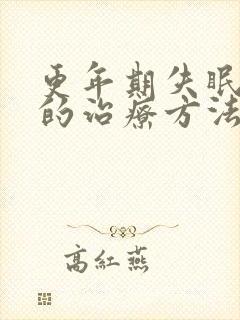 更年期失眠
的治療方法
高紅燕